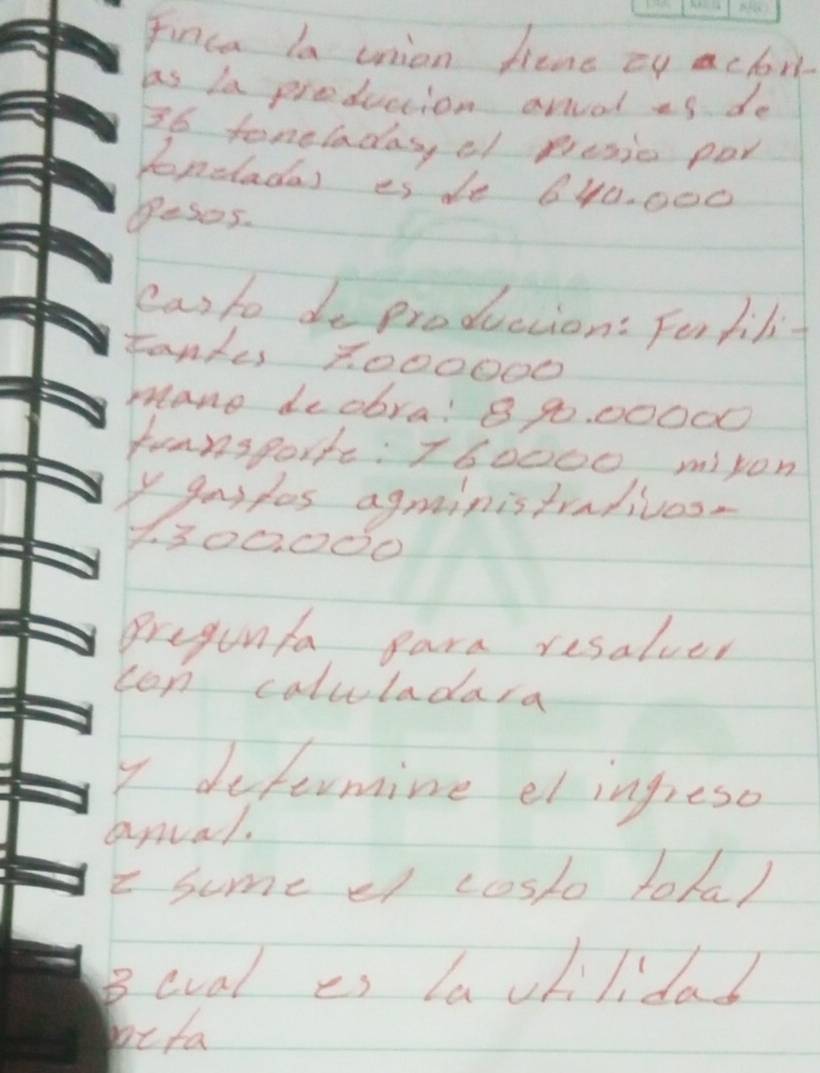 Finca la union tiene 24 actori-
as la produccion anual es de
36 toneladas, el presio por
toneladas es de 640.000
pesos.
casto de produccion: Fertili-
zantes 7.000000
mano de obra: 890.00000
transporte: 760000 mixon
y gastos agministrativos-
1.300.000
pregunta para resalver
con calculadara
1 determine el ingreso
anual.
2 sume el costo total
3 cual es la utilidad
neta